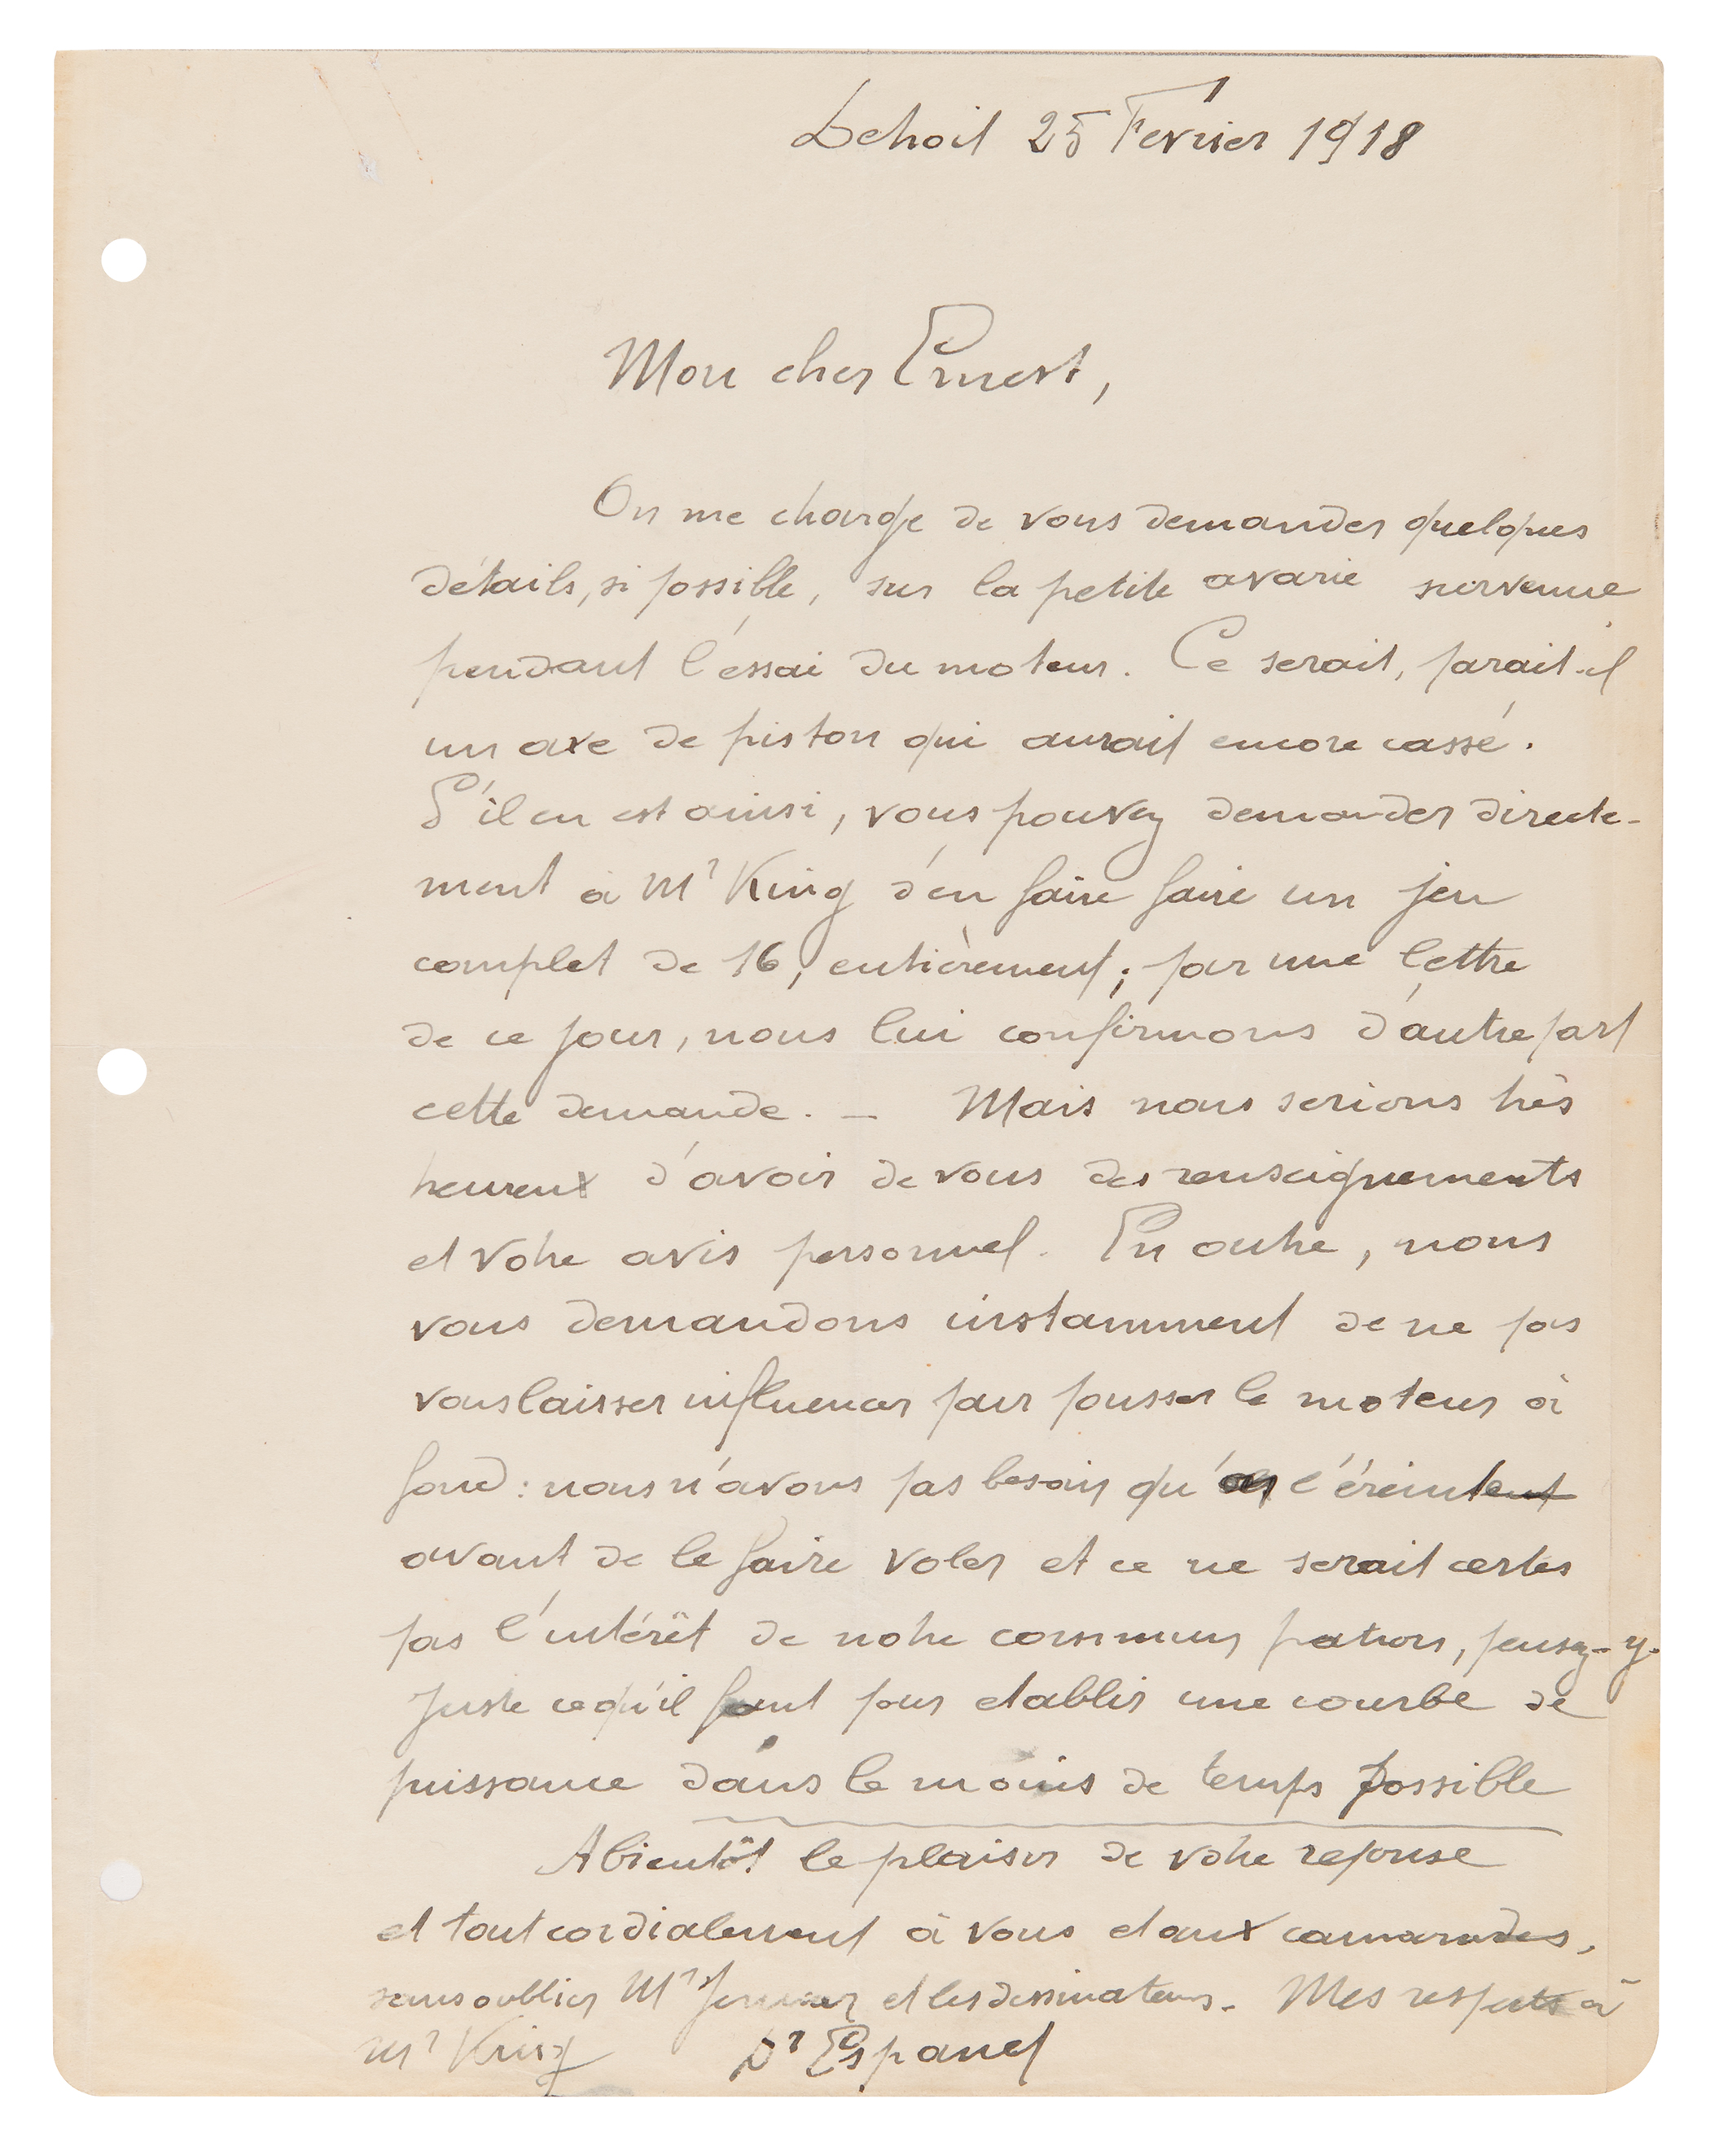 Detroit 25 Fevrier 1918
Mon cher Ernest,
On me charge de vous demander quelques
détails, si possible, sur la petite avarie survenue
pendant l'essai du moteur. Ce serait, parait-il
un axe de piston qui aurait encore cassé.
S'il en est ainsi, vous pouvez demander directe-
ment à Mr King d'en faire faire un jeu
complet de 16, entièrement; par une lettre
de ce jour, nous lui confirmons d'autre part
cette demande. — Mais nous serions très
heureux d'avoir de vous des renseignements
et votre avis personnel. En outre, nous
vous demandons instamment de ne pas
vous laisser influencer pour pousser le moteur à
fond: nous n'avons pas besoin qu' l'éreintent
avant de le faire voler et ce ne serait certes
pas l'intérêt de notre commun patron, pensez-y.
Juste ce qu'il faut pour etablir une courbe de
puissance dans le moins de temps possible
A bientôt le plaisir de votre reponse
et tout cordialement à vous et aux camarades,
sans oublier Mr et les dessinateurs. Mes respects à
Mr King Dr Espanet